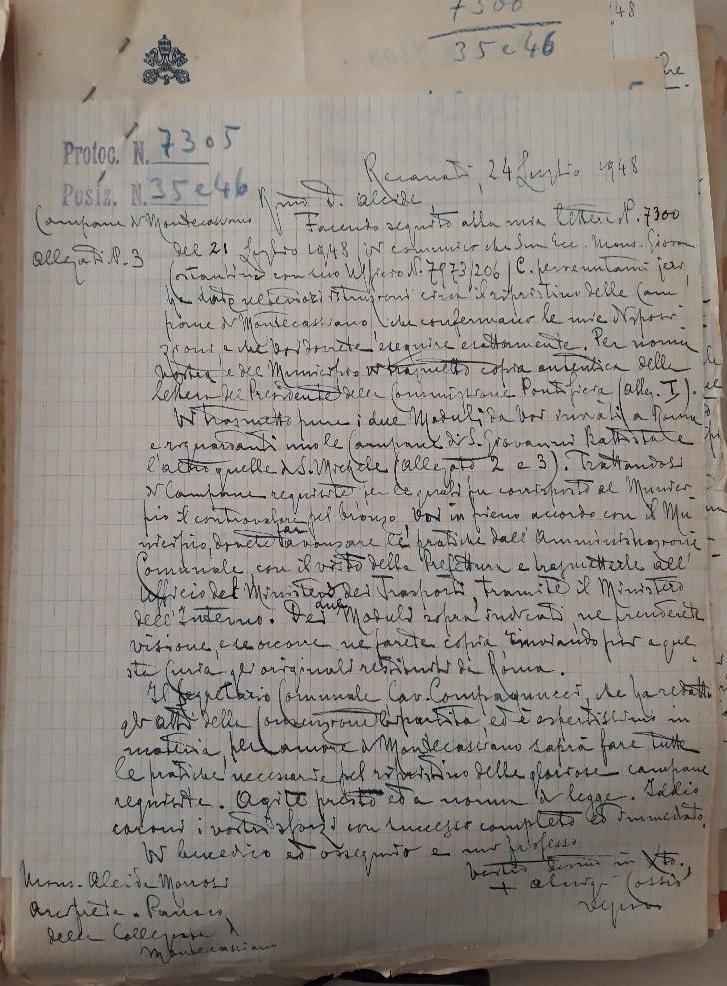 7300
35 e 46
48
Protoc. N. 7305
Posiz. N. 35 e 46
Recanati, 24 Luglio 1948
Campane di Montecassiano
allegati N. 3
Rmo D. Alcide,
Facendo seguito alla mia lettera N. 7300
del 21 Luglio 1948, vi comunico che Sua Ecc. Mons. Giovan
Costantini con suo Uffiero N. 7973/206/C. pervenutami ieri
ha dato ulteriori istruzioni circa il ripristino delle Cam
pane di Montecassiano, che confermano le mie disposi
zioni, e che voi dovrete eseguire esattamente. Per norma
vostra e del Municipio vi trasmetto copia autentica della
lettera del Presidente della Commissione Pontificia (alleg. I).
Vi trasmetto pure i due Moduli da voi inviati a Roma
e riguardanti uno le Campane di S. Giovanni Battista e
l'altro quelle di S. Michele (allegato 2 e 3). Trattandosi
di Campane requisite per le quali fu corrisposto al Munici
pio il controvalore pel bronzo, voi in pieno accordo con il Mu
nicipio, dovrete far avanzare le pratiche dall'Amministrazione
Comunale, con il visto della Prefettura e trasmetterle all'
Ufficio del Ministero dei Trasporti, tramite il Ministero
dell'Interno. Dei due Moduli sopra indicati, ne prenderete
visione, e se occorre, ne farete copia rinviando poi a que
sta Curia gli originali restituiti da Roma.
Il Segretario Comunale Cav. Compagnucci, che ha redatto
gli atti della Convenzione bipartita, ed è espertissimo in
materia, per l'amore di Montecassiano saprà fare tutte
le pratiche necessarie pel ripristino delle gloriose campane
requisite. Agite presto ed a norma di legge. Iddio
coroni i vostri sforzi con successo completo ed immediato.
Vi benedico ed ossequio e mi professo
vostro devmo in Xto.
+ Aluigi Cossio
vescovo
Mons. Alcide
Arciprete Parroco
della Collegiata di
Montecassiano